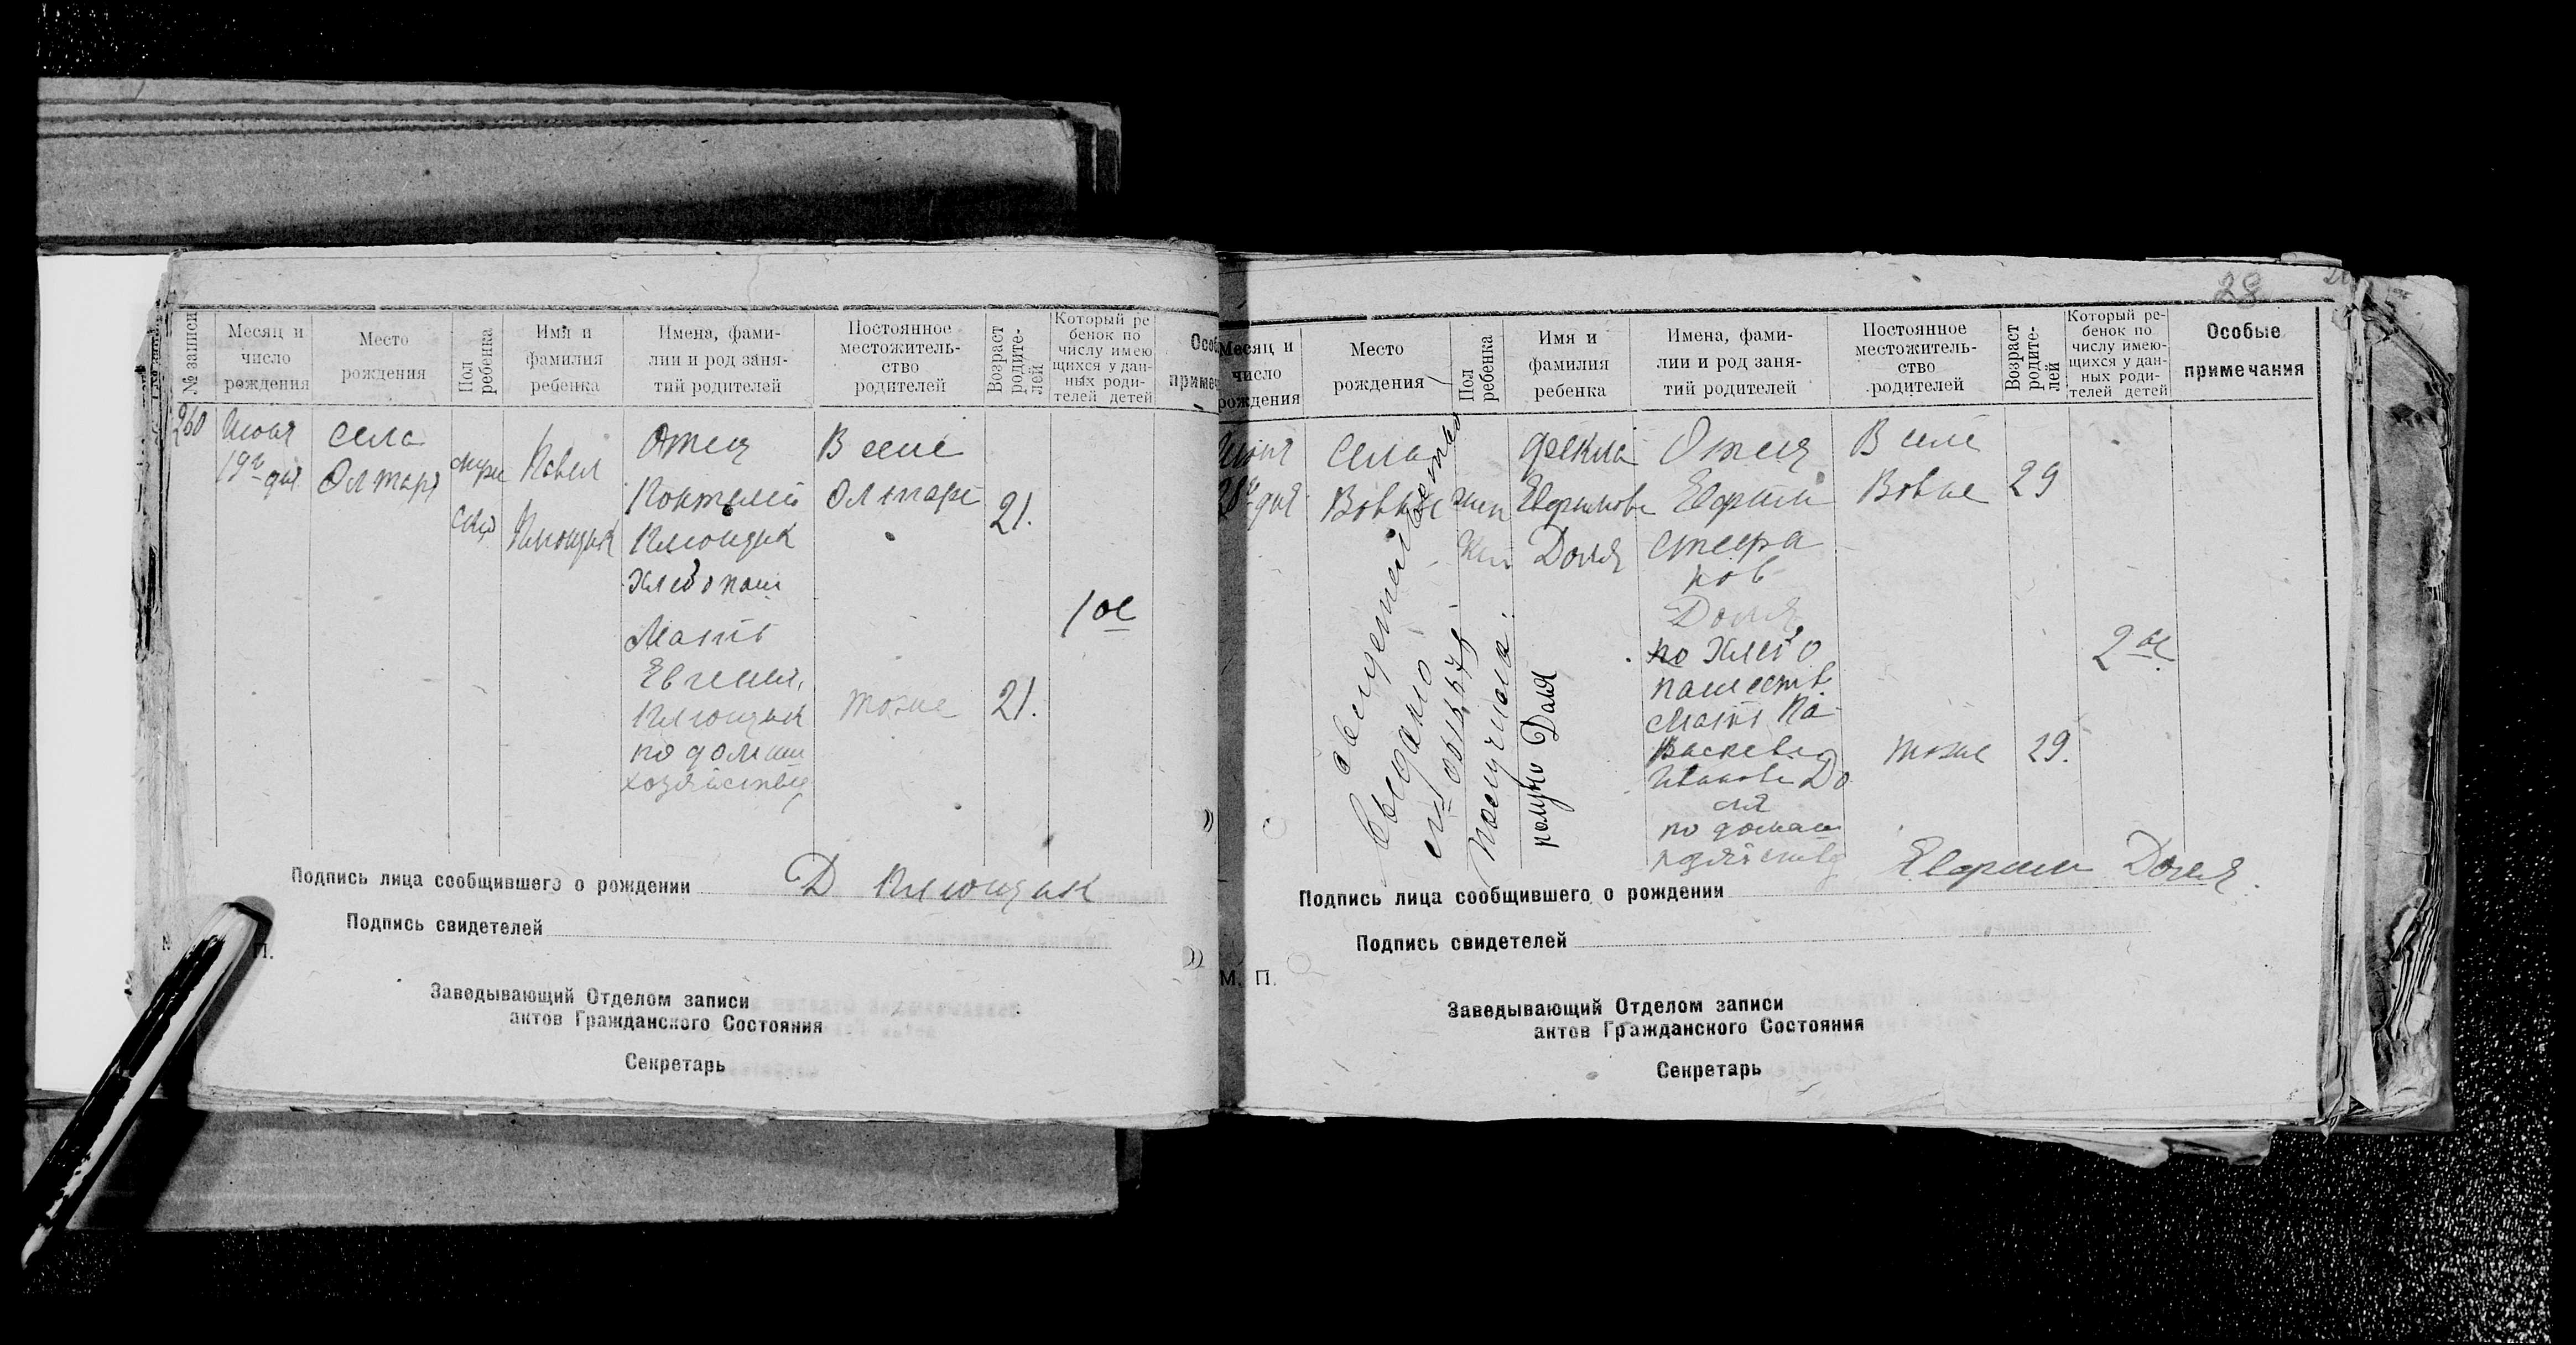 28
№ записи
Месяц и
число
рождения
Место
рождения
Пол
ребенка
Имя и
фамилия
ребенка
Имена, фами-
лии и род заня-
тий родителей
Постоянное
местожитель-
ство
родителей
Возраст
родите-
лей
Который ре
бенок по
числу имею
щихся у дан-
ных роди-
телей детей
Особ
примеч
260
Июня
19го дня
село
Олтарь
муже
ско
Павел
Клющик
Отец
Клющик
Хлебопаш
Мать
Евгения
Клющик
по домаш
хозяйству
В селе
Олтаре
тоже
21.
21.
1ое
Подпись лица сообщившего о рождении Д Клющик
Подпись свидетелей
П.
Заведывающий Отделом записи
актов Гражданского Состояния
Секретарь
Месяц и
число
рождения
Место
рождения
Пол
ребенка
Имя и
фамилия
ребенка
Имена, фами-
лии и род заня-
тий родителей
Постоянное
местожитель-
ство
родителей
Возраст
родите-
лей
Который ре-
бенок по
числу имею-
щихся у дан-
ных роди-
телей детей
Особые
примечания
Июня
28го дня
село
Вовке
жен
Фекла
Ефимова
Доля
Отец
Ефим
Стефа
нов
Доля
по Хлебо
пашеств
Мать Па
раскева
Иванова До
ля
по домаш
В селе
Вовке
тоже
29
29.
2ое
свидетельство
выдано
получила
Доля
Подпись лица сообщившего о рождении Ефим Доля.
Подпись свидетелей
М. П.
Заведывающий Отделом записи
актов Гражданского Состояния
Секретарь